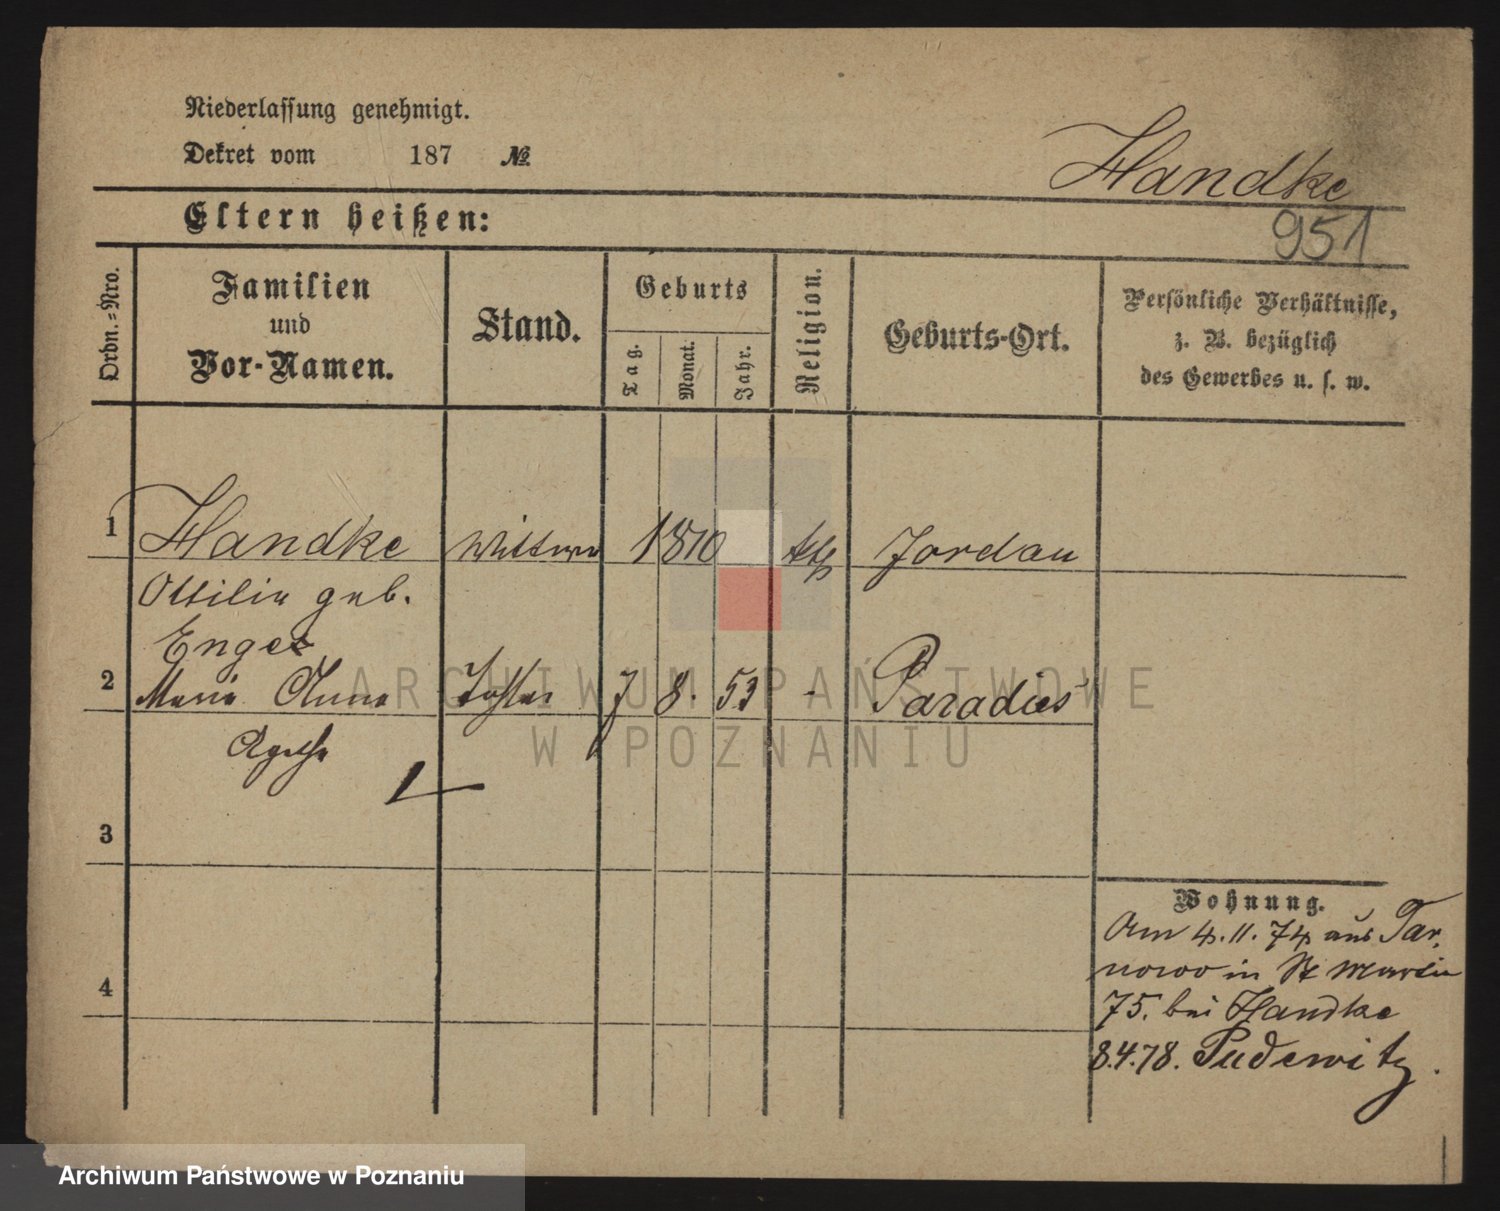 Niederlassung genehmigt.
Dekret vom 187 №
Handke
Eltern heißen:
951
Ordn.=Nro.
Familien
und
Vor-Namen.
Stand.
Geburts
Tag.
Monat.
Jahr.
Religion.
Geburts-Ort.
Persönliche Verhältnisse,
z. B. bezüglich
des Gewerbes u. s. w.
1 Handke Wittwe 1810 kth Jordan
Ottilie geb.
Enge
2 Maria Anna Tochter 7 8. 53 - Paradies
Agathe
3
4
Wohnung.
Am 4.11.74 aus Tar,
nowo in St Martin
75. bei Handke
8.4.78. Pudewitz.
ARCHIWUM PAŃSTWOWE
W POZNANIU
Archiwum Państwowe w Poznaniu